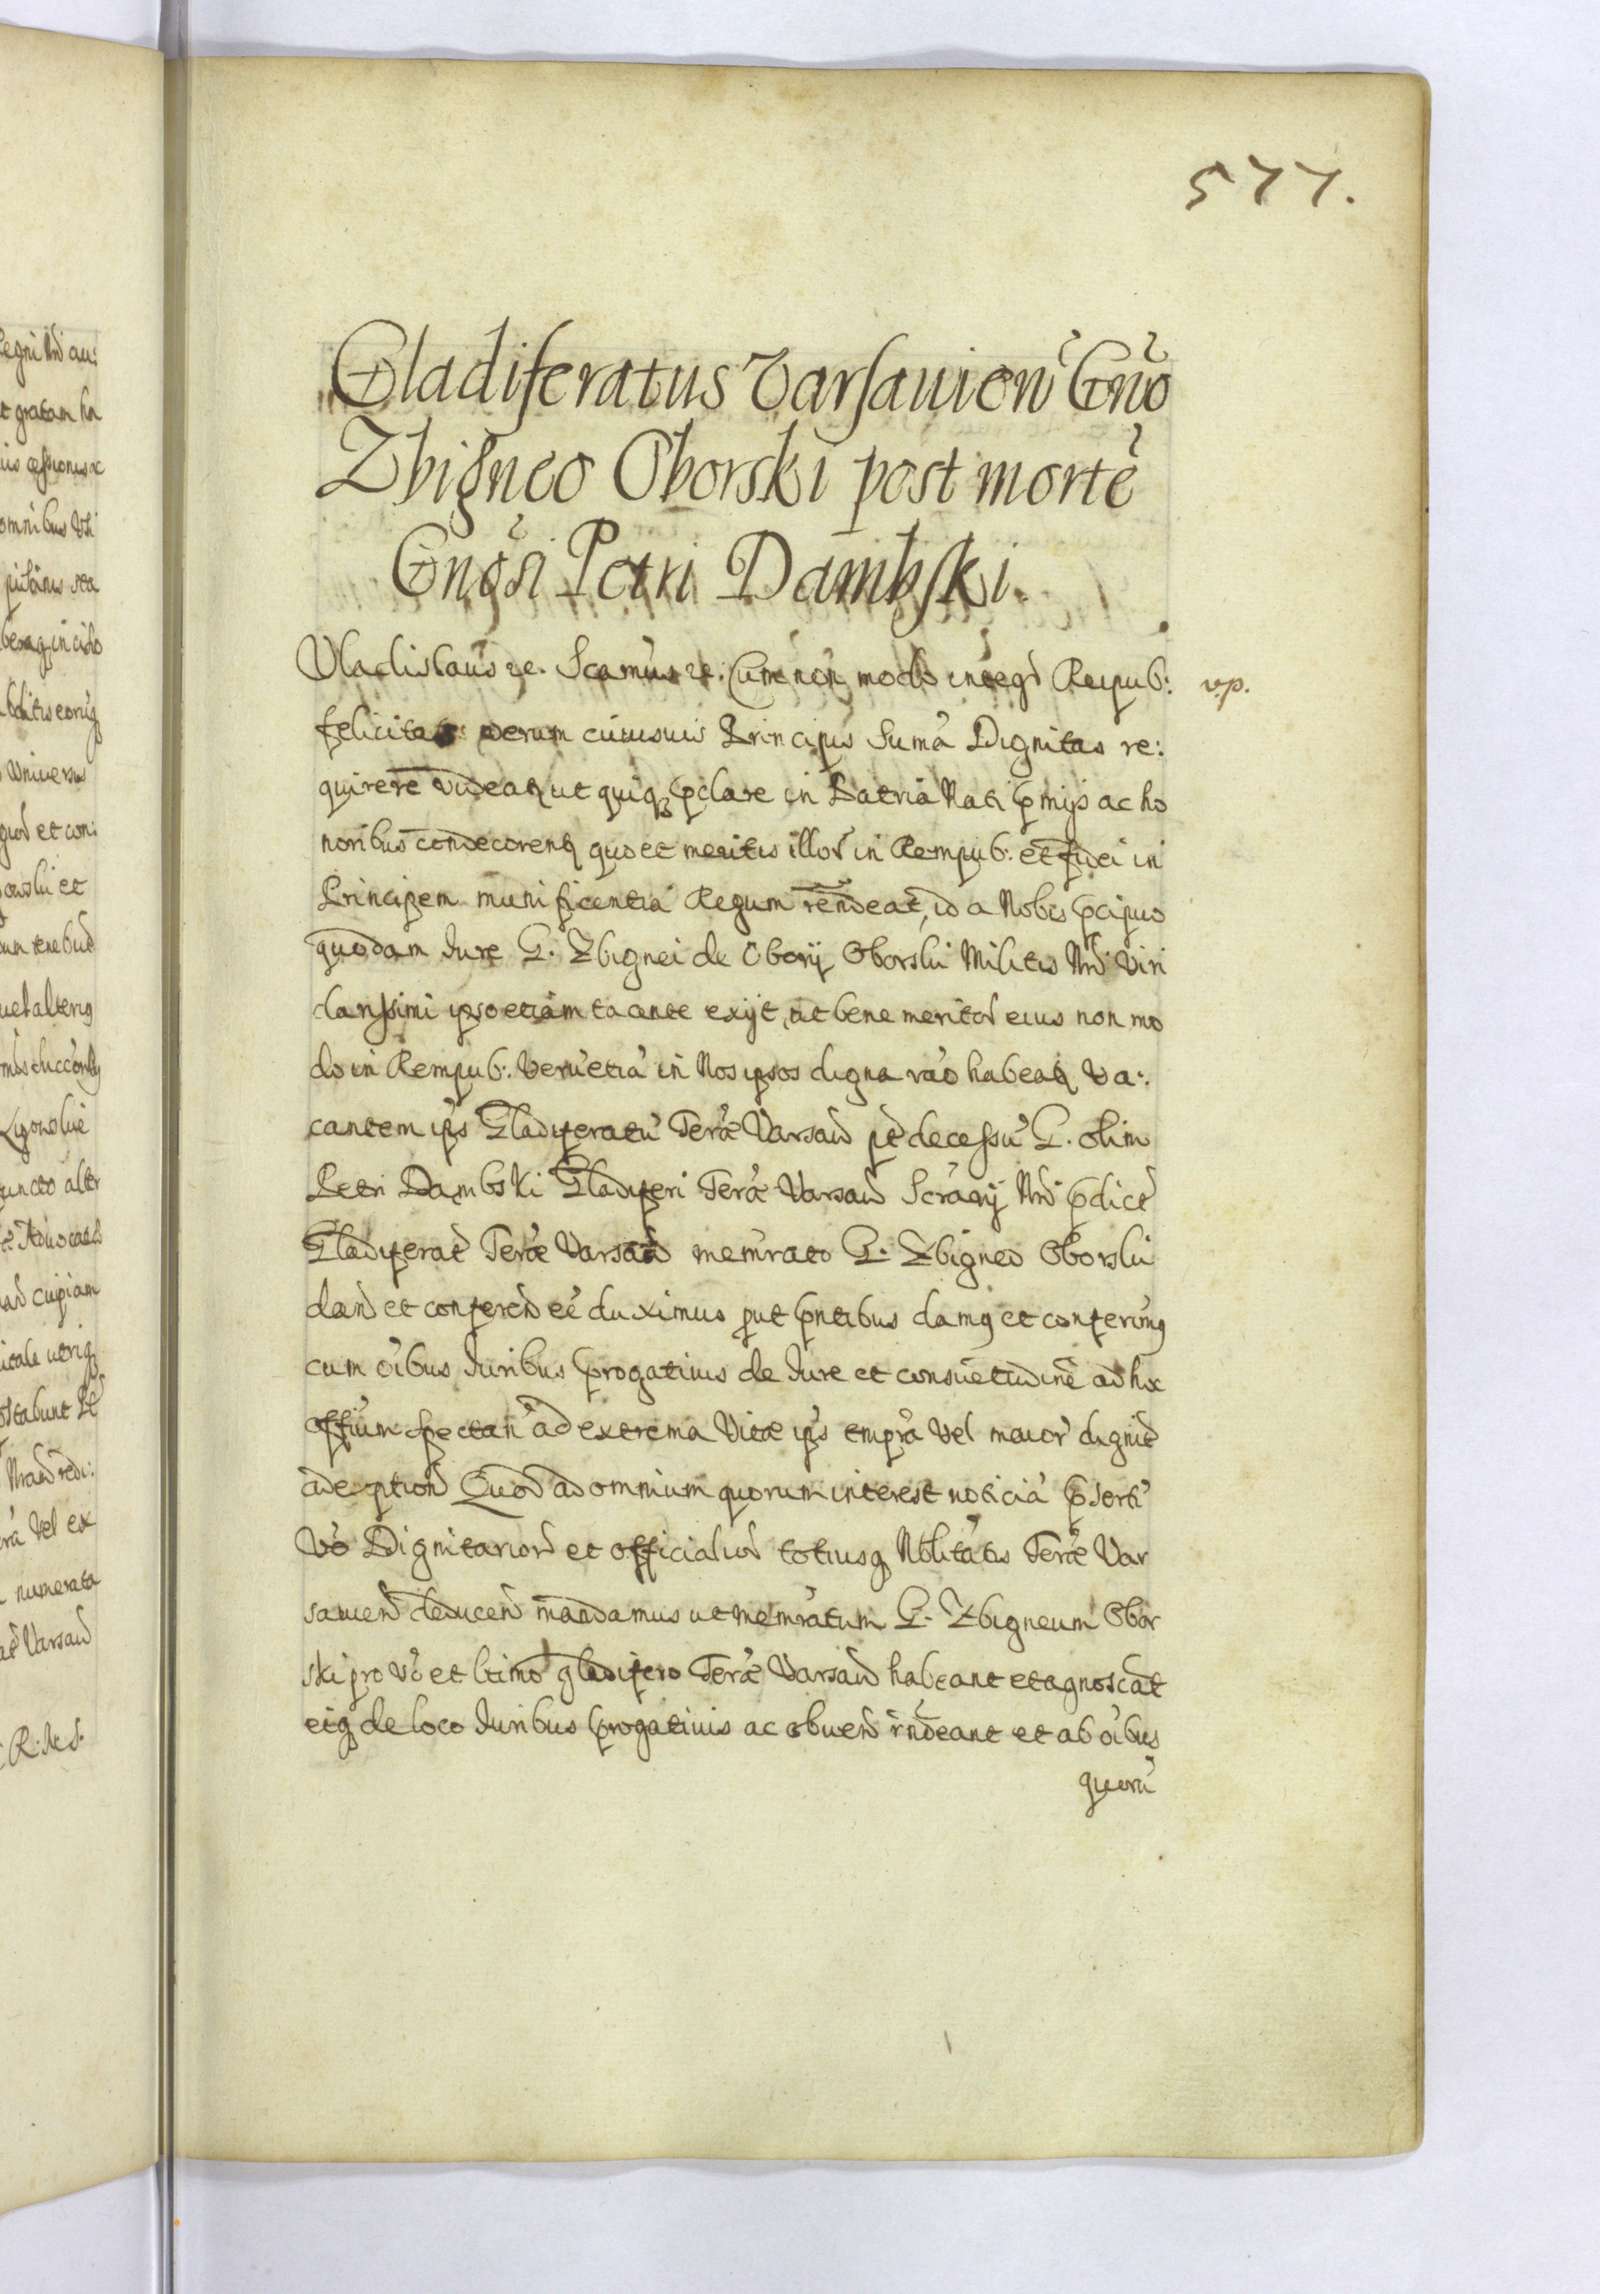 577.
Gladiferatus Varsavien̄ Gn̄o
Zbigneo Oborski post mortē
Gnōsi Petri Dambski.
Vladislaūs ꝛc. Scamūs ꝛc. Cum nōn modo integr̄ Reipub:
v.p.
felicitas verum cuiusuis Principis sum̄a Dignitas re:
quirere videatꝗ ut quiqꝫ p̄clare in Patria Nati p̄mijs ac ho
noribus condecorentꝗ quo et meritis illor̄ in Rempub. et fidei in
Principem munificentia Regum rēndeat, id a Nobis p̄cipuo
quodam Jure G. Zbignei de Obory Oborski Militis Nr̄i Viri
clarissimi ipso etiam tacente exijt, ut bene meritor̄ eius non mo
do in Rempub. verūetiā in Nos ipsos digna rāo habeatꝗ Va:
cantem ip̄s Gladiferatū Terræ Varsav̄ pt̄ decessū G. olim
Petri Dambski Gladiferi Terræ Varsav̄ Scrāry Nr̄i p̄dict̄
Gladiferat̄ Terræ Varsav̄ memr̄ato G. Zbigneo Oborski
dand̄ et conferend̄ eē duximus put p̄ntibus damꝗ et conferimꝗ
cum oībus Juribus p̄rogativis de Jure et consuetudine ad hoc
offīum spectan̄ ad extrema Vitæ ip̄s tempr̄a Vel maior̄ dignit̄
adeption̄ Quod ad omnium quorum interest noticiā p̄sertī
Vō Dignitarior̄ et officialiū totiusqꝫ Nobilitatis Terræ Var
savien̄ deducend̄ mandamus ut memr̄atum G. Zbigneum Obor
ski pro Vō et ltimo gladifero Terræ Varsav̄ habeant et agnoscāt
eiqꝫ de loco Juribus p̄rogativis ac obuen̄ rn̄deant et ab oībus
quorū